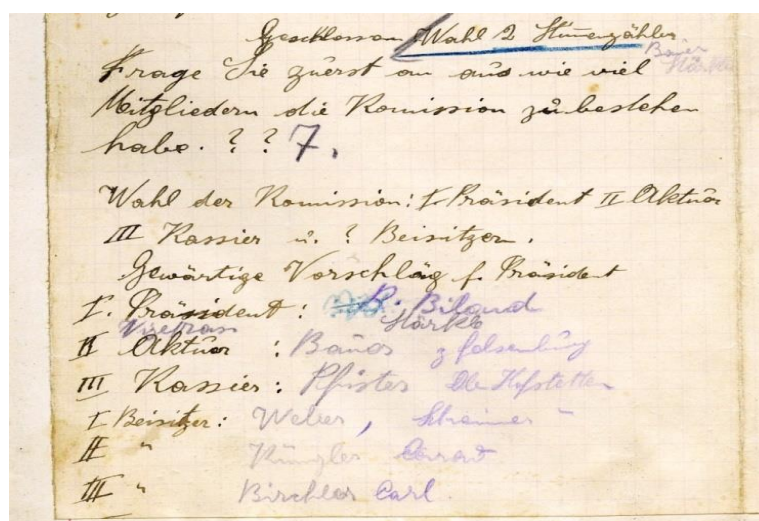 Geschlossen Wahl 2 Stimmenzähler
Frage Sie zuerst an aus wie viel
Mitgliedern die Komission zu bestehen
habe. ? ? 7.
Wahl der Komission: I Präsident II Aktuar
III Kassier u. ? Beisitzer.
Gewärtige Vorschläg f. Präsident
I. Präsident: B. Biland
Stärkle
II Aktuar :
III Kassier: Pfister Hofstetten
I Beisitzer: Weber, Schreiner "
II " Künzler
III " Birchler Carl.